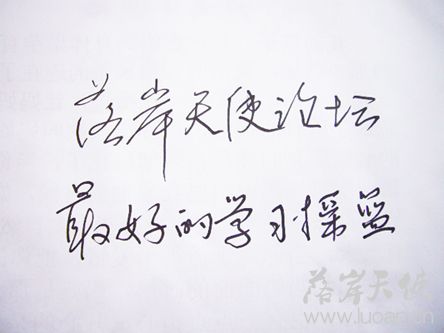 落岸天使论坛
最好的学习摇篮
落岸天使
www.luoan.cn